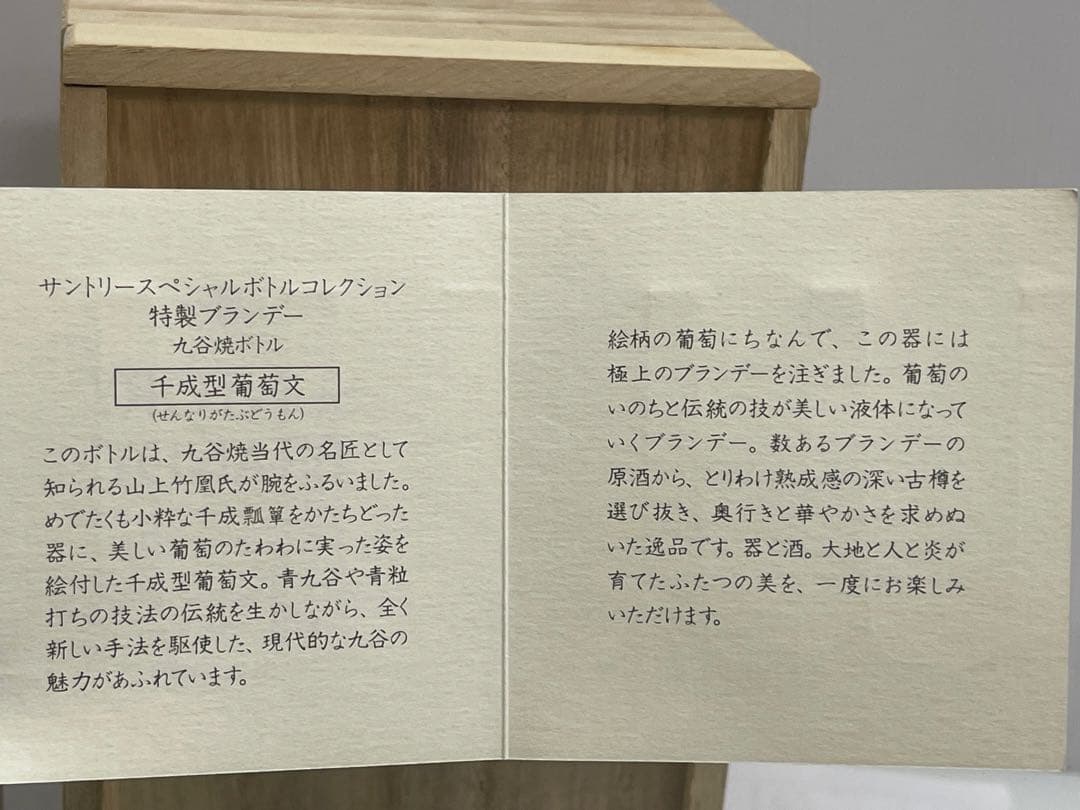 サントリースペシャルボトルコレクション
特製ブランデー
九谷焼ボトル
千成型葡萄文
(せんなりがたぶどうもん)
このボトルは、九谷焼当代の名匠として
知られる山上竹凰氏が腕をふるいました。
めでたくも小粋な千成瓢箪をかたちどった
器に、美しい葡萄のたわわに実った姿を
絵付した千成型葡萄文。青九谷や青粒
打ちの技法の伝統を生かしながら、全く
新しい手法を駆使した、現代的な九谷の
魅力があふれています。
絵柄の葡萄にちなんで、この器には
極上のブランデーを注ぎました。葡萄の
いのちと伝統の技が美しい液体になって
いくブランデー。数あるブランデーの
原酒から、とりわけ熟成感の深い古樽を
選び抜き、奥行きと華やかさを求めぬ
いた逸品です。器と酒。大地と人と炎が
育てたふたつの美を、一度にお楽しみ
いただけます。